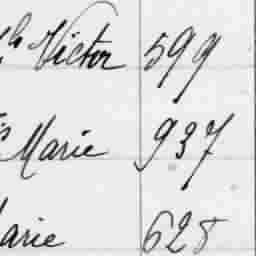 Victor 599
Marie 937
arie 628